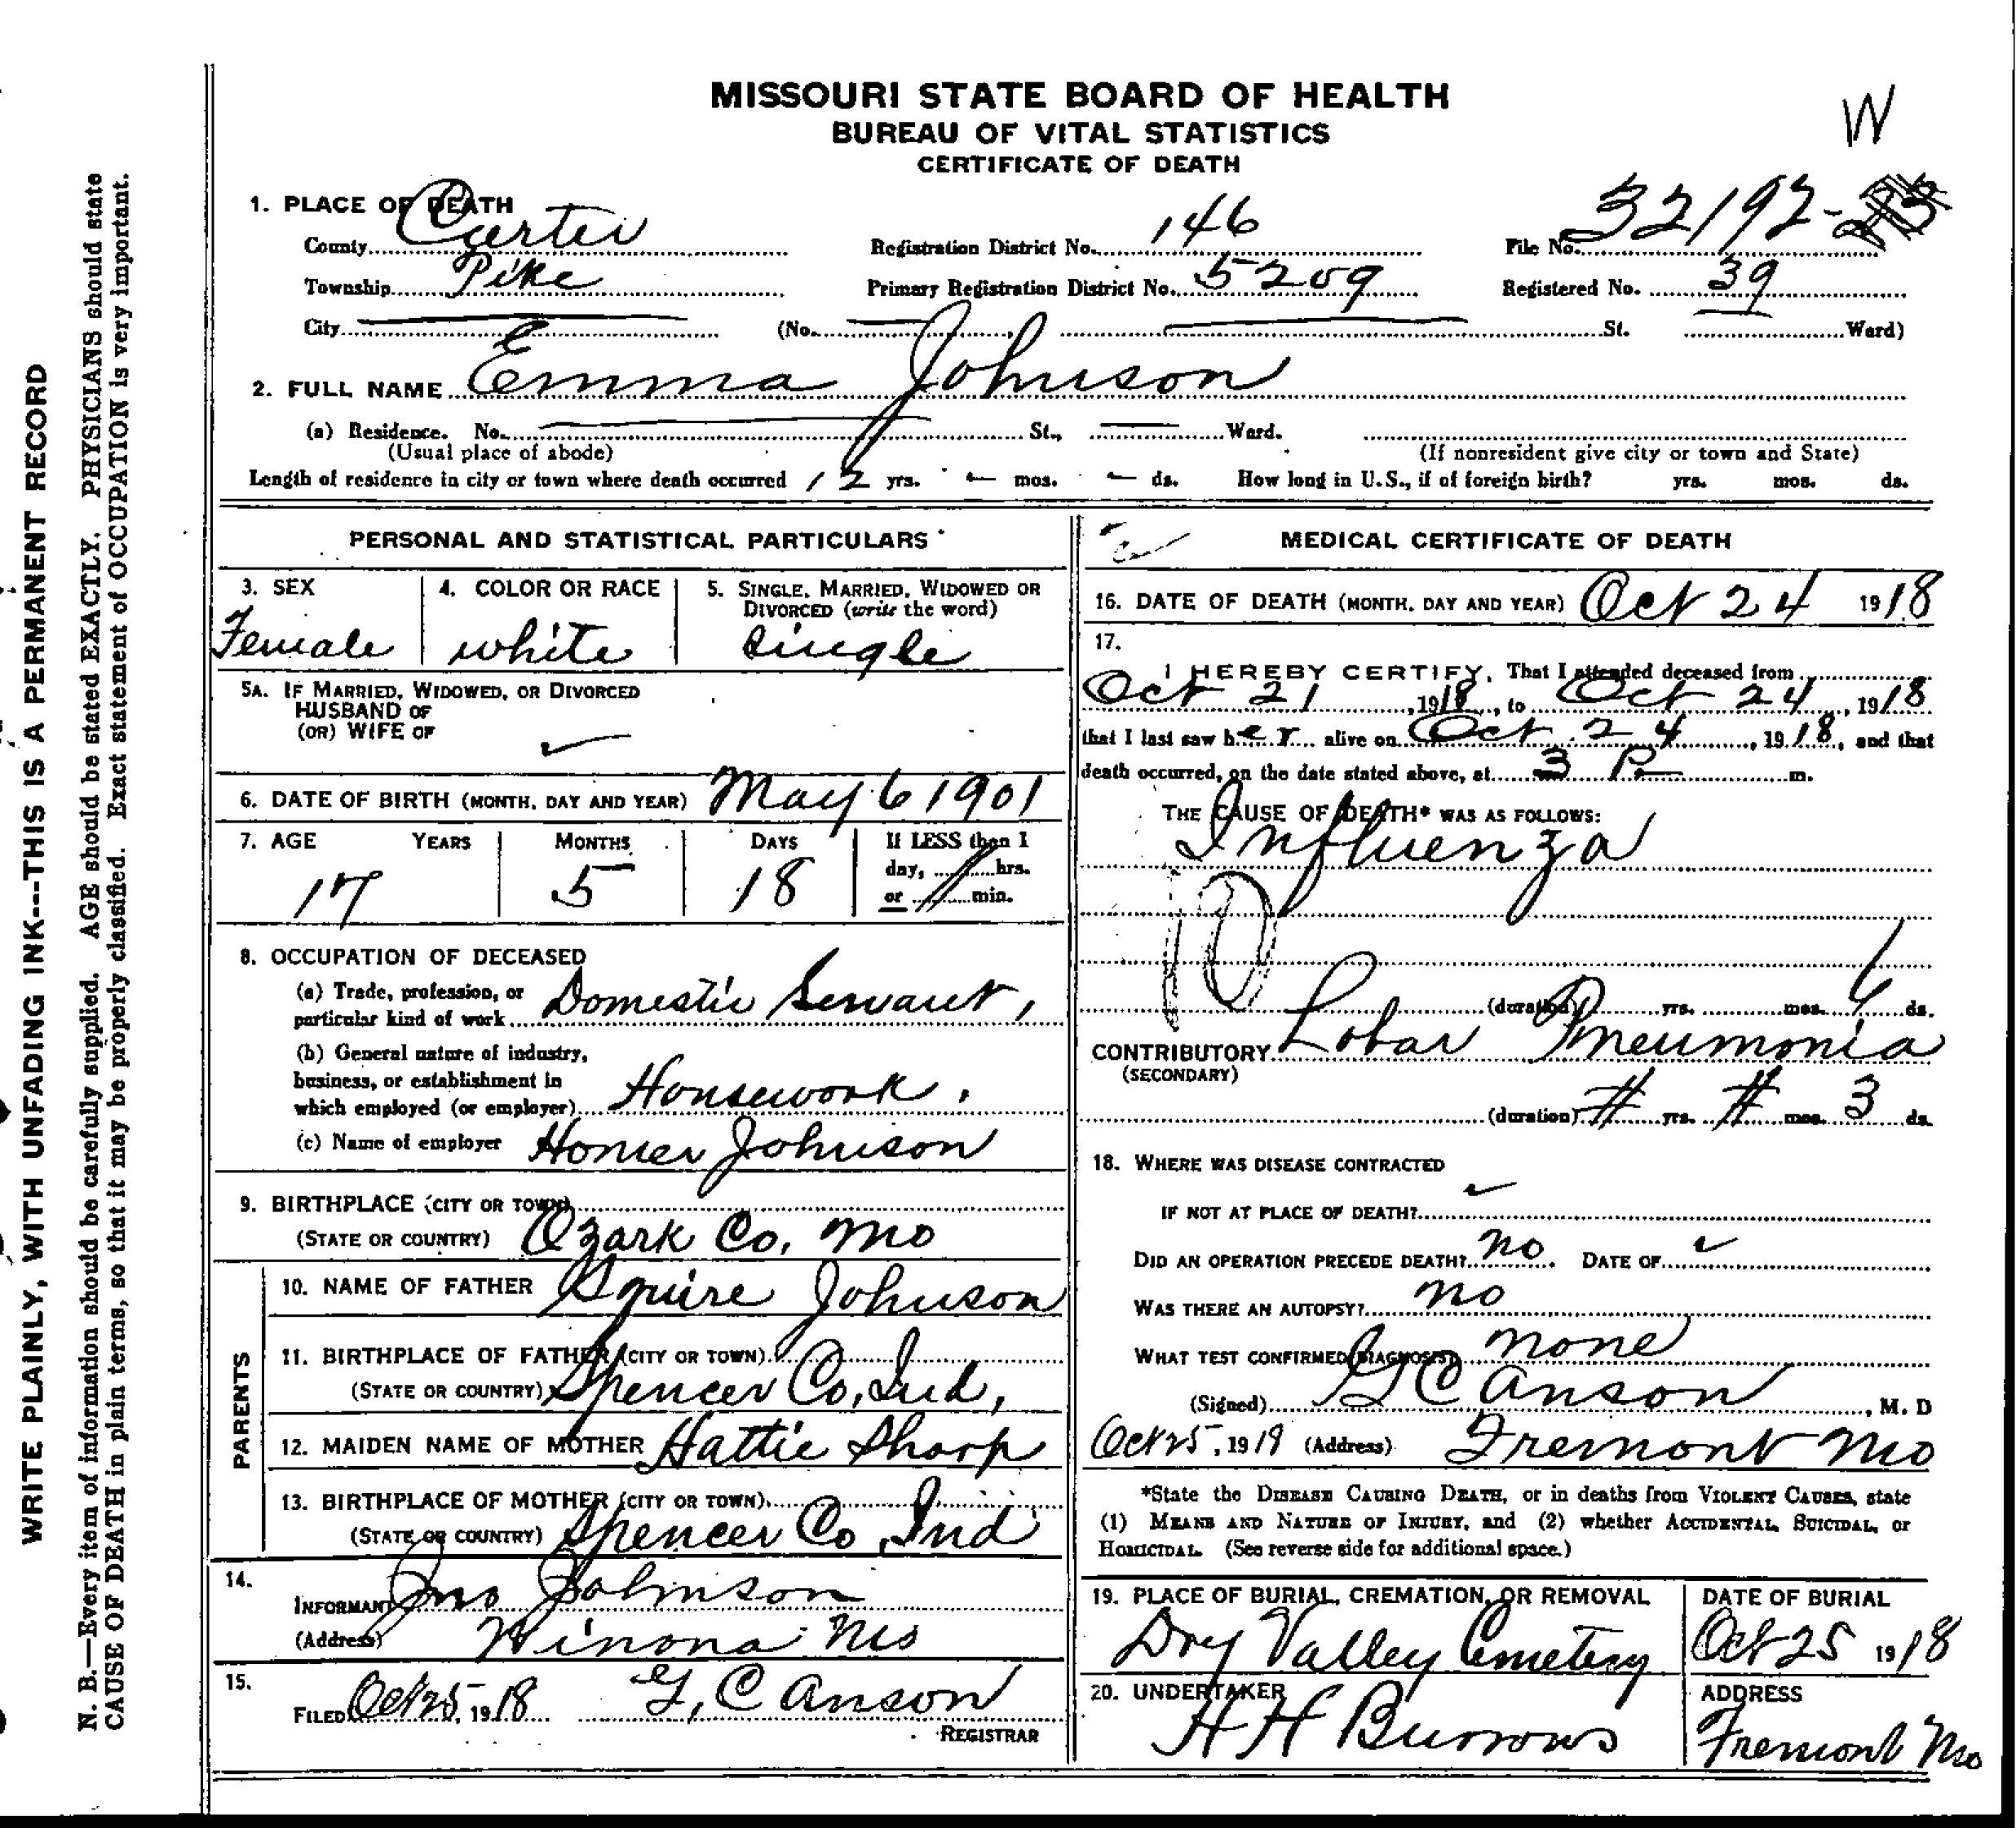 WRITE PLAINLY, WITH UNFADING INK---THIS IS A PERMANENT RECORD
N. B.—Every item of information should be carefully supplied. AGE should be stated EXACTLY. PHYSICIANS should state
CAUSE OF DEATH in plain terms, so that it may be properly classified. Exact statement of OCCUPATION is very important.
MISSOURI STATE BOARD OF HEALTH
BUREAU OF VITAL STATISTICS
CERTIFICATE OF DEATH
W
1. PLACE OF DEATH
County Carter Registration District No. 146 File No. 32192
Township Pike Primary Registration District No. 5209 Registered No. 39
City (No. St. Ward)
2. FULL NAME Emma Johnson
(a) Residence. No. St., Ward.
(Usual place of abode) (If nonresident give city or town and State)
Length of residence in city or town where death occurred 12 yrs. — mos. — ds. How long in U.S., if of foreign birth? yrs. mos. ds.
PERSONAL AND STATISTICAL PARTICULARS
3. SEX 4. COLOR OR RACE 5. SINGLE, MARRIED, WIDOWED OR
DIVORCED (write the word)
Female white single
5A. IF MARRIED, WIDOWED, OR DIVORCED
HUSBAND OF
(OR) WIFE OF
6. DATE OF BIRTH (MONTH, DAY AND YEAR) May 6 1901
7. AGE YEARS MONTHS DAYS If LESS than 1
day, hrs.
17 5 18 or min.
8. OCCUPATION OF DECEASED
(a) Trade, profession, or
particular kind of work Domestic Servant,
(b) General nature of industry,
business, or establishment in
which employed (or employer) Housework.
(c) Name of employer Homer Johnson
9. BIRTHPLACE (CITY OR TOWN)
(STATE OR COUNTRY) Ozark Co, Mo
PARENTS
10. NAME OF FATHER Squire Johnson
11. BIRTHPLACE OF FATHER (CITY OR TOWN)
(STATE OR COUNTRY) Spencer Co, Ind,
12. MAIDEN NAME OF MOTHER Hattie Sharp
13. BIRTHPLACE OF MOTHER (CITY OR TOWN)
(STATE OR COUNTRY) Spencer Co, Ind
14.
INFORMANT Jno Johnson
(Address) Winona Mo
15.
FILED Oct 25, 1918 G, C Anson
REGISTRAR
MEDICAL CERTIFICATE OF DEATH
16. DATE OF DEATH (MONTH, DAY AND YEAR) Oct 24 1918
17.
I HEREBY CERTIFY, That I attended deceased from
Oct 21, 1918, to Oct 24, 1918
that I last saw her alive on Oct 24, 1918, and that
death occurred, on the date stated above, at 3 P m.
THE CAUSE OF DEATH* WAS AS FOLLOWS:
Influenza
10
(duration) yrs. mos. 6 ds.
CONTRIBUTORY Lobar Pneumonia
(SECONDARY)
(duration) # yrs. # mos. 3 ds.
18. WHERE WAS DISEASE CONTRACTED
IF NOT AT PLACE OF DEATH?
DID AN OPERATION PRECEDE DEATH? no. DATE OF
WAS THERE AN AUTOPSY? no
WHAT TEST CONFIRMED DIAGNOSIS? none
(Signed) G C Anson, M. D
Oct 25, 1918 (Address) Fremont Mo
*State the DISEASE CAUSING DEATH, or in deaths from VIOLENT CAUSES, state
(1) MEANS AND NATURE OF INJURY, and (2) whether ACCIDENTAL, SUICIDAL, or
HOMICIDAL. (See reverse side for additional space.)
19. PLACE OF BURIAL, CREMATION, OR REMOVAL DATE OF BURIAL
Dry Valley Cemetery Oct 25 1918
20. UNDERTAKER ADDRESS
H H Burrows Fremont Mo